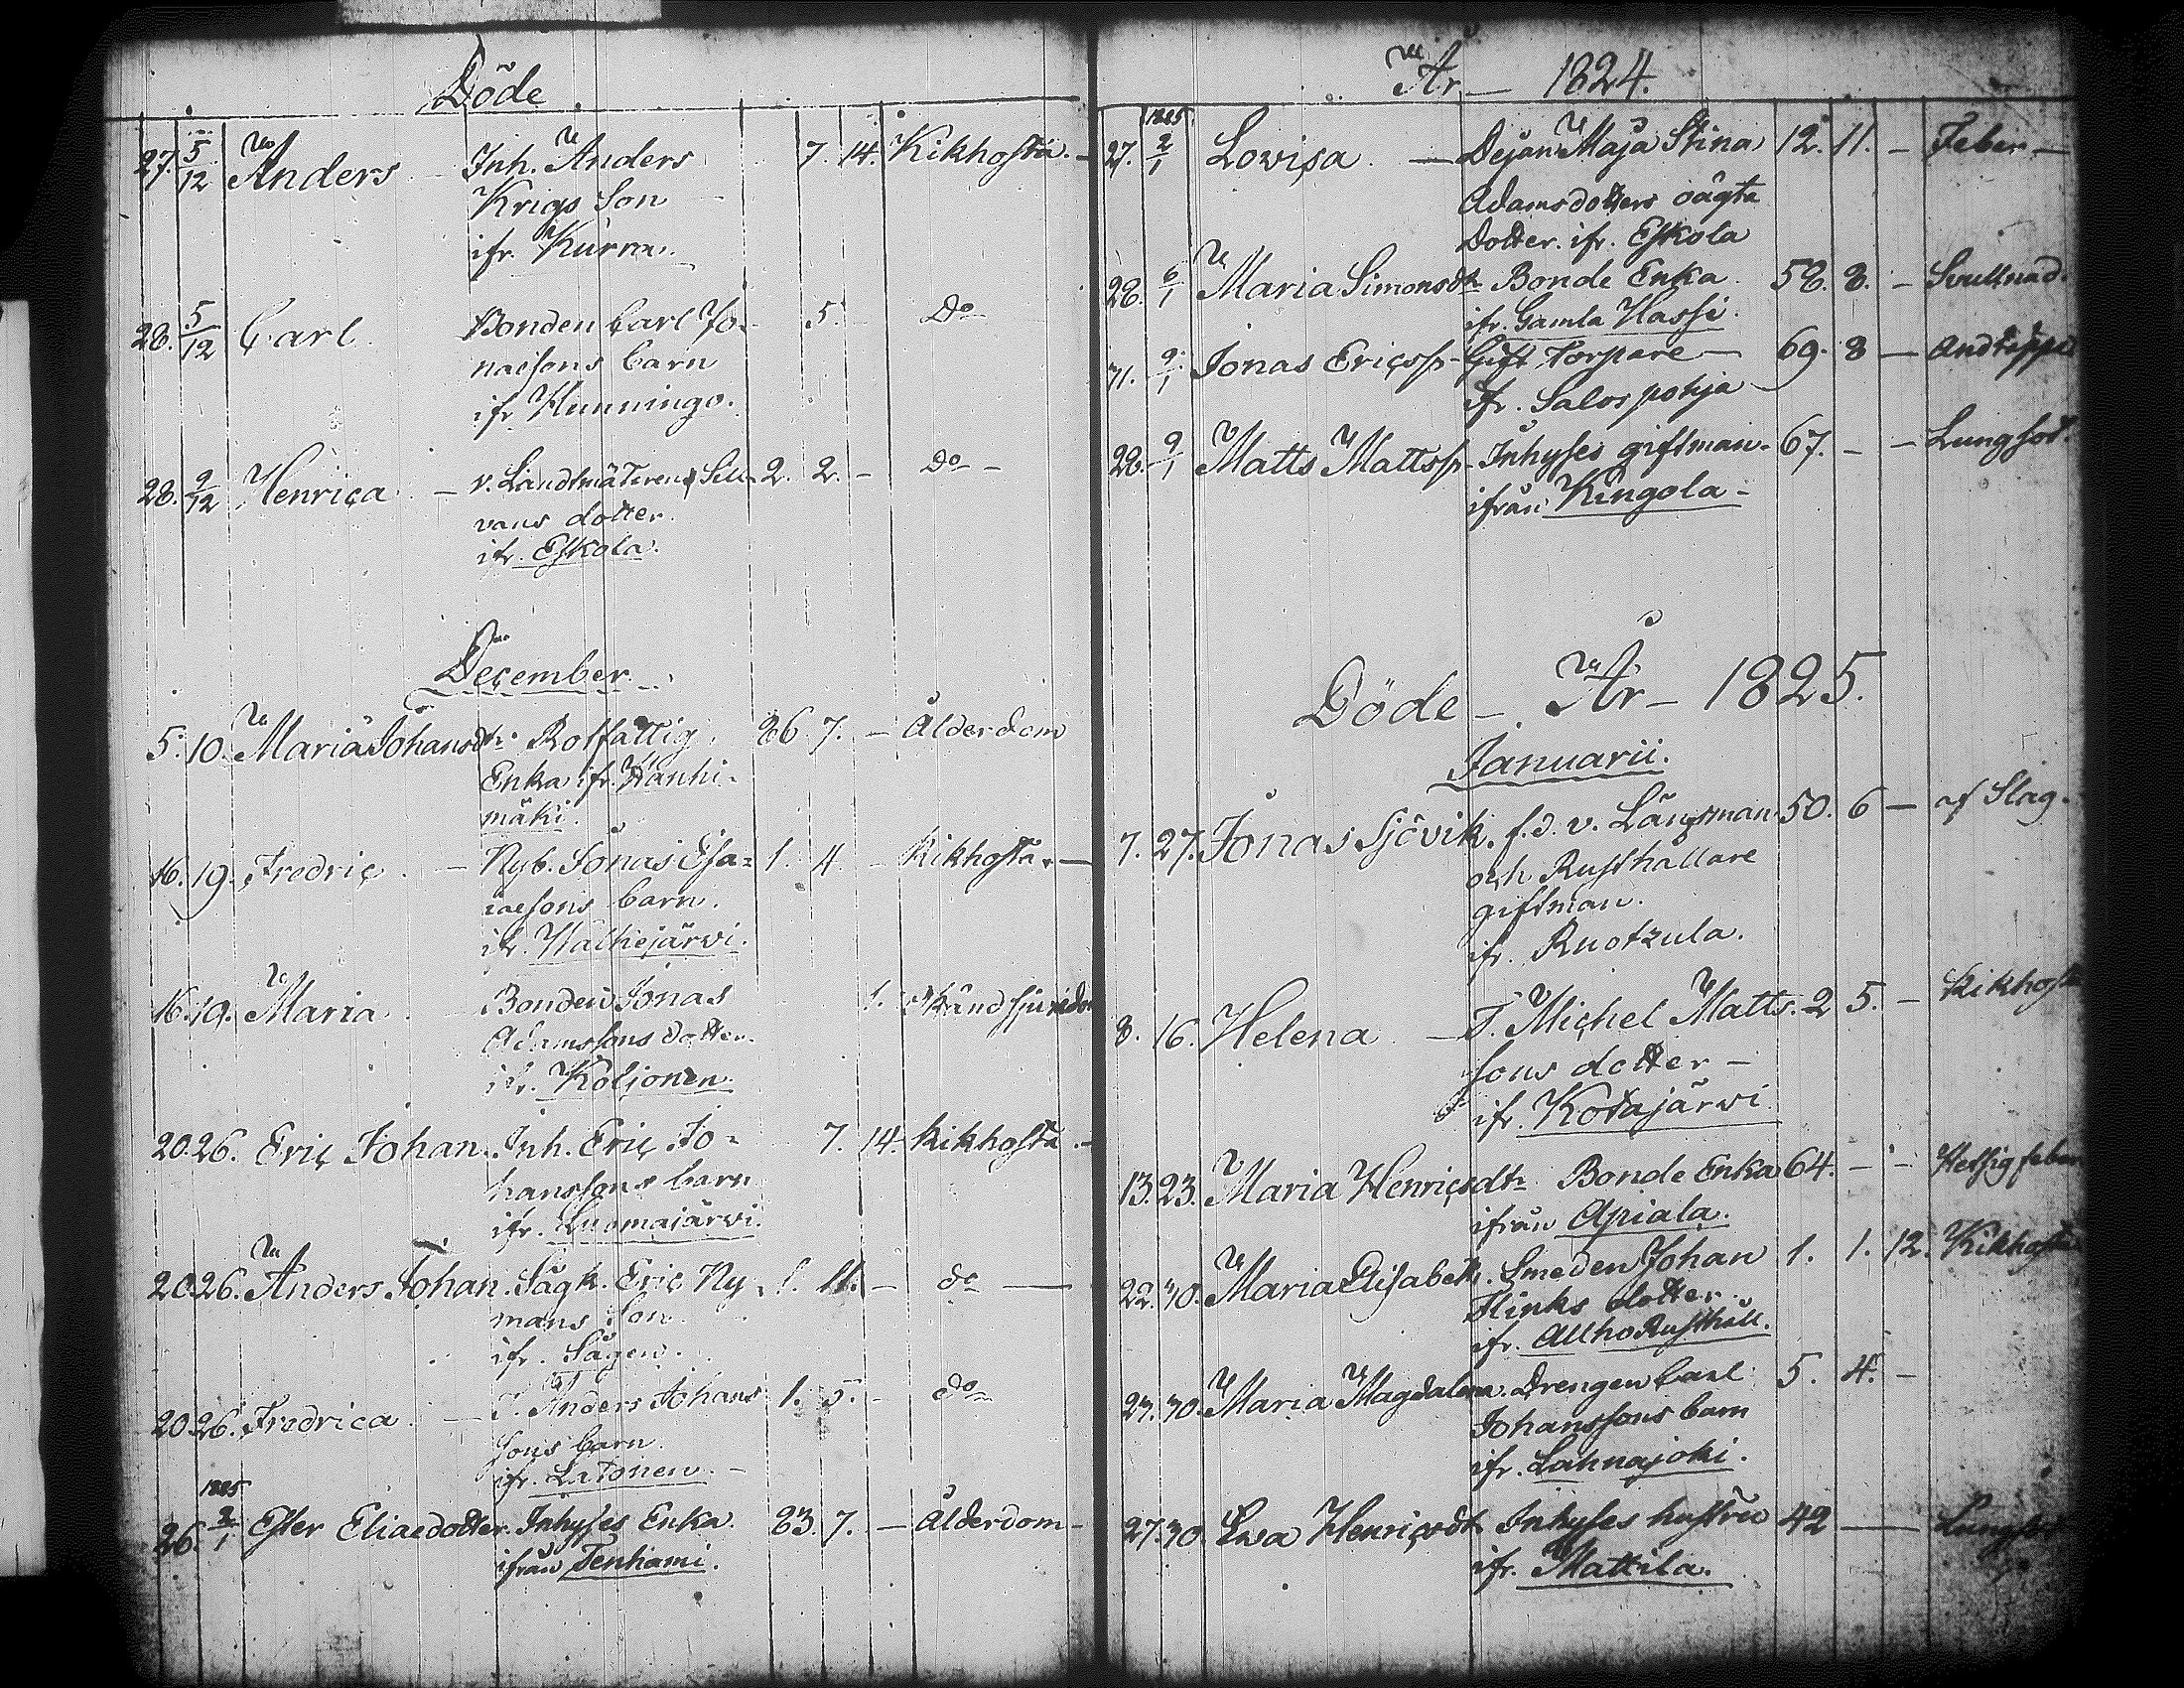 Döde
27. 5/12 Anders - Inh. Anders 7 14. Kikhosta. -
Krigs Son
ifr. Kurm.
28. 5/12 Carl. Bonden Carl Jo- 5. Do
naesons barn
ifr Hunningo.
28. 9/12 Henrica - v. Landtmäteren 2. 2. - Do -
vans dotter.
ifr. Eskola.
December.
5. 10. Maria Johansdtr. Rotfattig 86. 7. - Ålderdom
Enka ifr. Hanhi-
mäki.
16. 19. Fredric. - Nyb. Jonas Esa- 1. 4. - Kikhosta. -
iaesons barn.
ifr. Walkejärwi.
16. 19. Maria. Bonden Jonas 1.
Adamssons dotter.
ifr. Koljonen.
20. 26. Eric Johan. Inh. Eric Jo- 7. 14. Kikhosta. -
hanssons barn
ifr. Luomajärwi.
20. 26. Anders Johan. Sågk. Eric Ny- 1. 11. - do -
mans Son
ifr. Sågen.
20. 26. Fredrica. - T. Anders Johans 1. 5. - do
sons barn.
ifr. Latonen. -
1825
26. 2/1 Ester Eliaedotter. Inhyses Enka. 83. 7. - Ålderdom -
ifrån Tenhami.
År - 1824.
1825
27. 2/1 Lovisa. - Dejan Maja Stina 12. 11. - Feber -
Adamsdotters oägta
Dotter. ifr. Eskola
28. 6/1 Maria Simonsdtr Bonde Enka. 58. 8. - Svullnad.
ifr. Gamla Hassi.
31. 9/1 Jonas Ericss. Gift Torpare - 69. 8 - Andtäppa
ifr. Salospohja
28. 9/1 Matts Mattss. Inhyses giftman. 67. - - Lungsot.
ifrån Kingola -
Döde - År - 1825.
Januarii.
7. 27. Jonas Sjövik. f.d. v. Länsman 50. 6 - af Slag.
och Rusthållare
giftman.
ifr. Ruotzula.
8. 16. Helena. - T. Michel Matts. 2 5. - Kikhosta
sons dotter -
ifr. Kotajärwi
13. 23. Maria Henricsdtr Bonde Enka 64. - - Hetsig feber
ifrån Apiala.
22. 30. Maria Elisabeth. Smeden Johan 1. 1. 12. Kikhosta
Flinks dotter.
ifr. Alho Rusthåll.
23. 30. Maria Magdalena. Drengen Carl 5. 4. -
Johanssons barn
ifr. Lahnajoki.
27. 30. Ewa Henricsdtr Inhyses hustru 42 - Lungsot
ifr. Mattila.